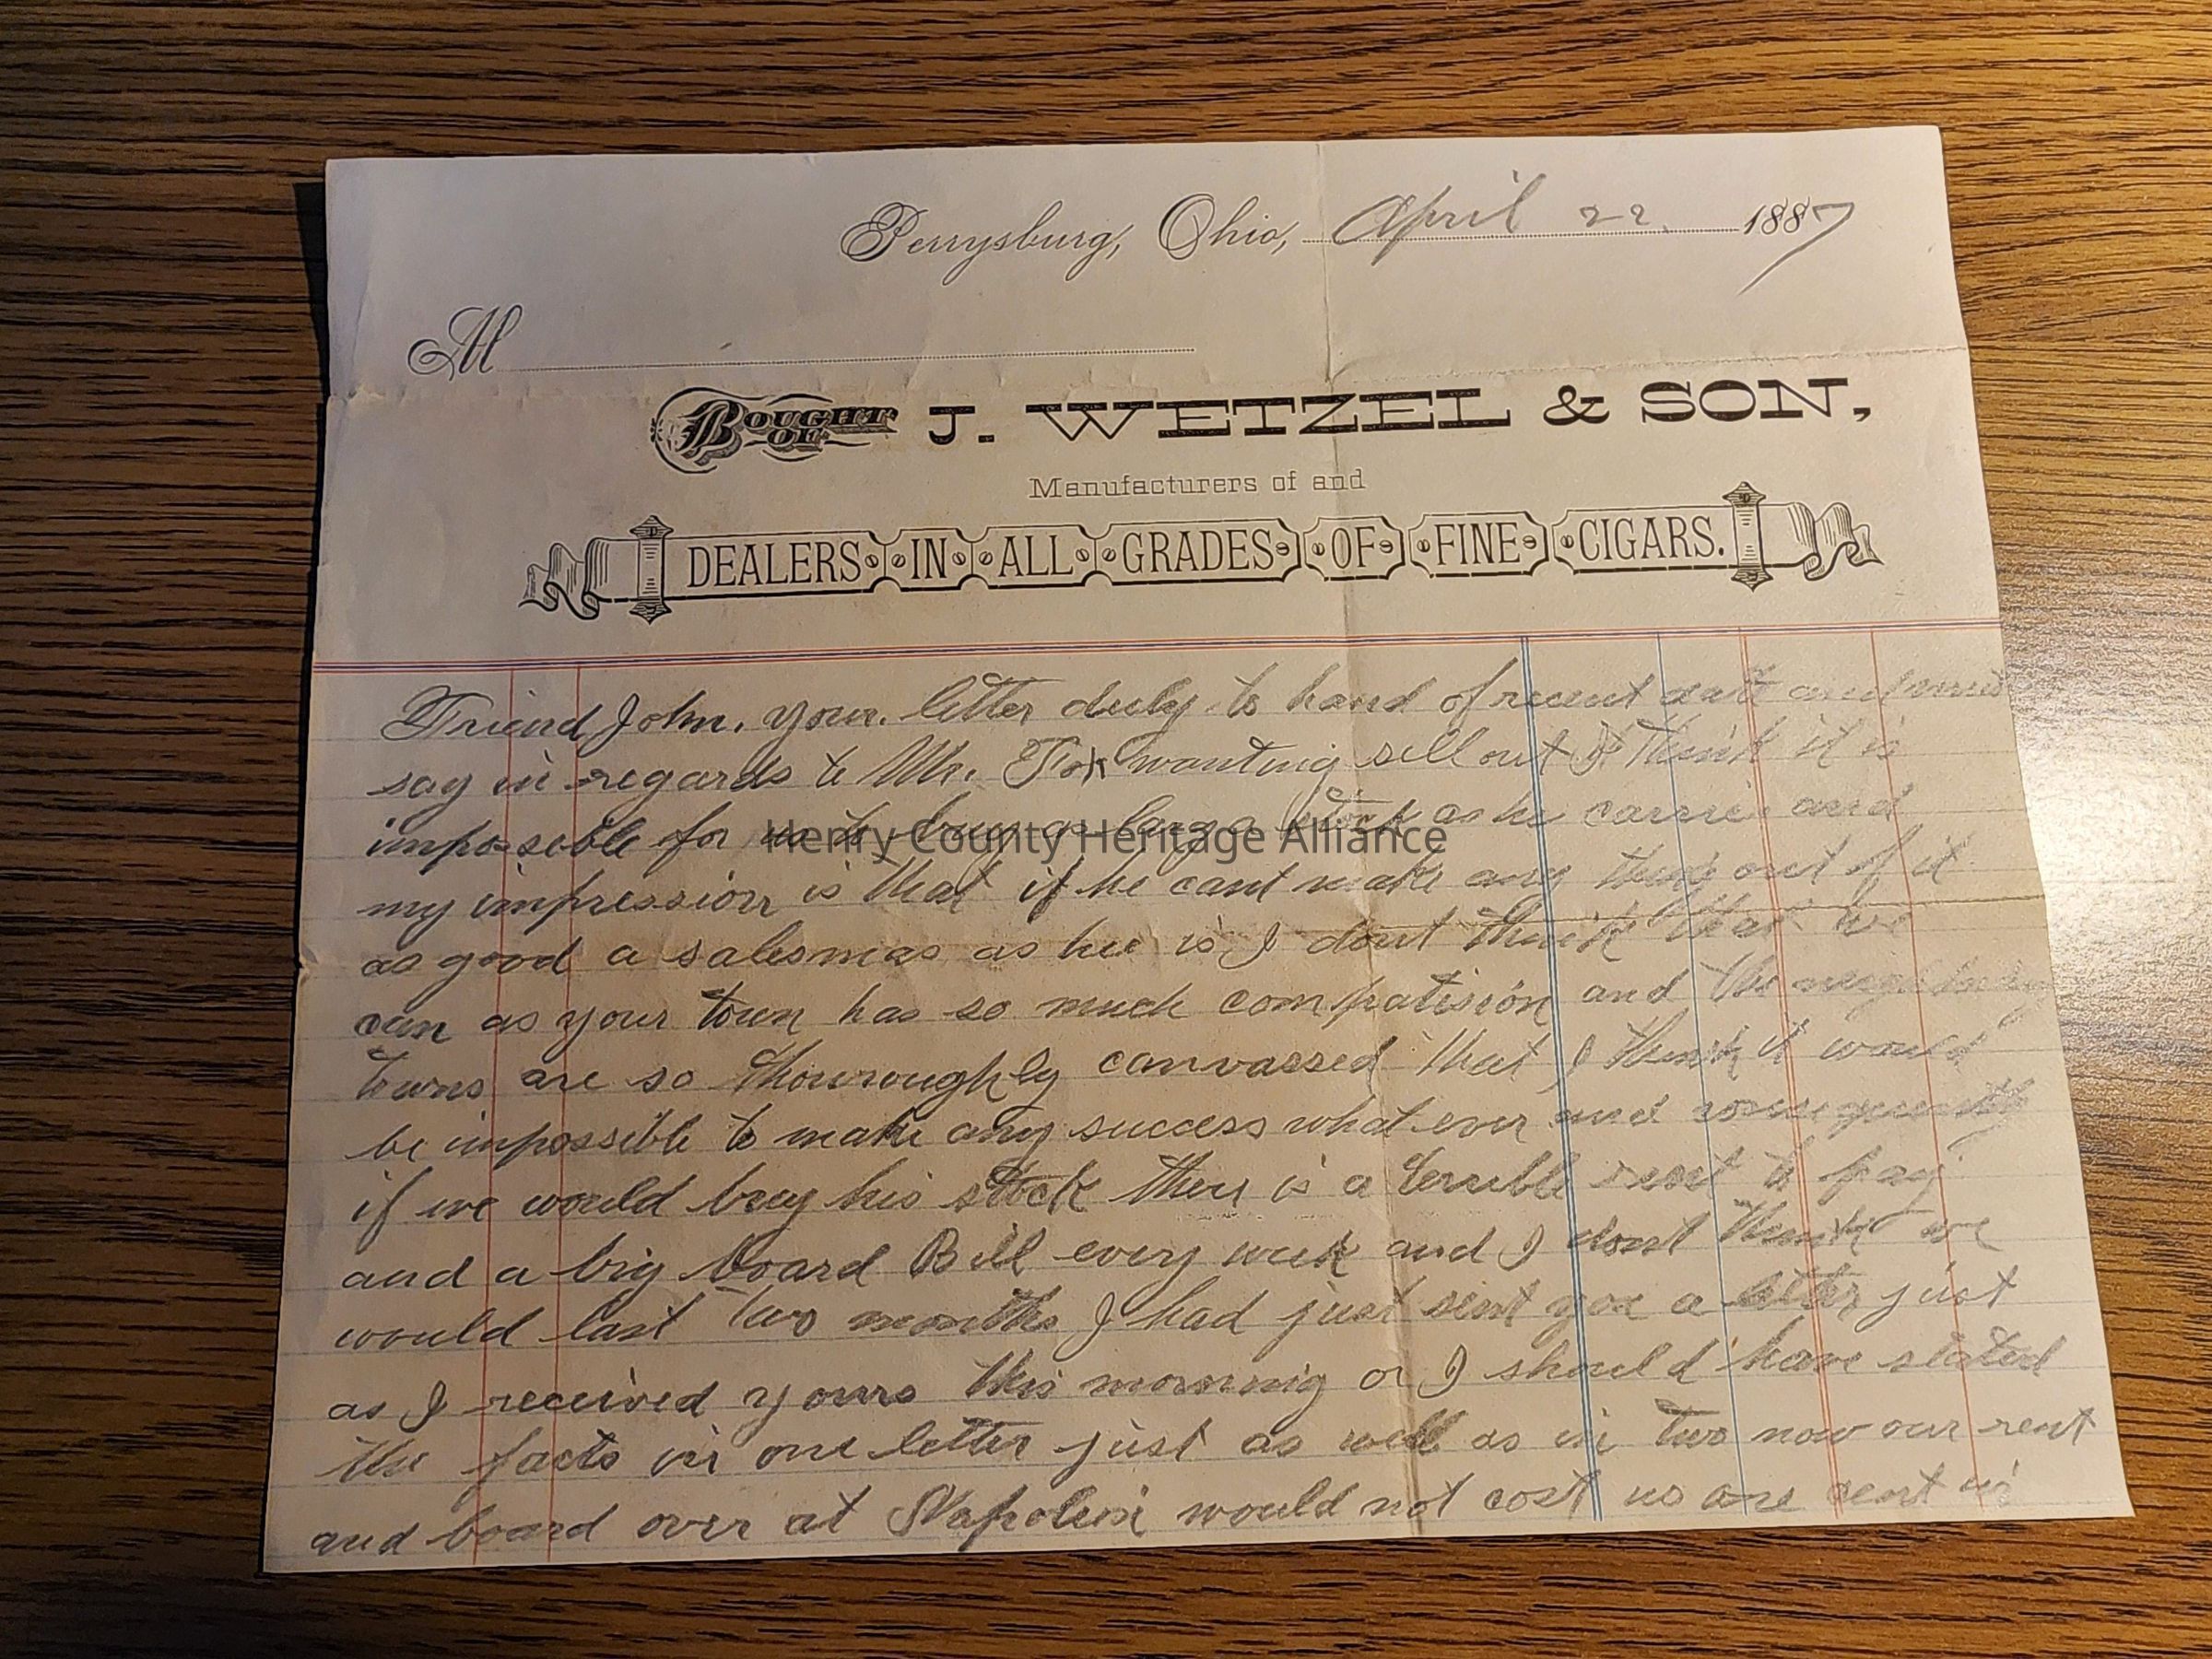 Perrysburg, Ohio, April 22. 1887
M
BOUGHT OF J. WETZEL & SON,
Manufacturers of and
DEALERS IN ALL GRADES OF FINE CIGARS.
Friend John, your letter duly to hand of recent date and must
say in regards to Mr. wanting sell out I think it is
impossible for us to buy as large a stock as he carries and
my impression is that if he cant make any thing out of it
as good a salesman as he is I dont think that we
can as your town has so much compatision and the
towns are so thouroughly canvassed that I think it would
be impossible to make any success what ever and
if we would buy his stock ther is a terrible rent to pay
and a big board Bill every week and I dont think we
would last two months I had just sent you a letter just
as I received yours this morning or I should have stated
the facts in one letter just as well as in two now our rent
and board over at Napoleon would not cost us one cent in
Henry County Heritage Alliance